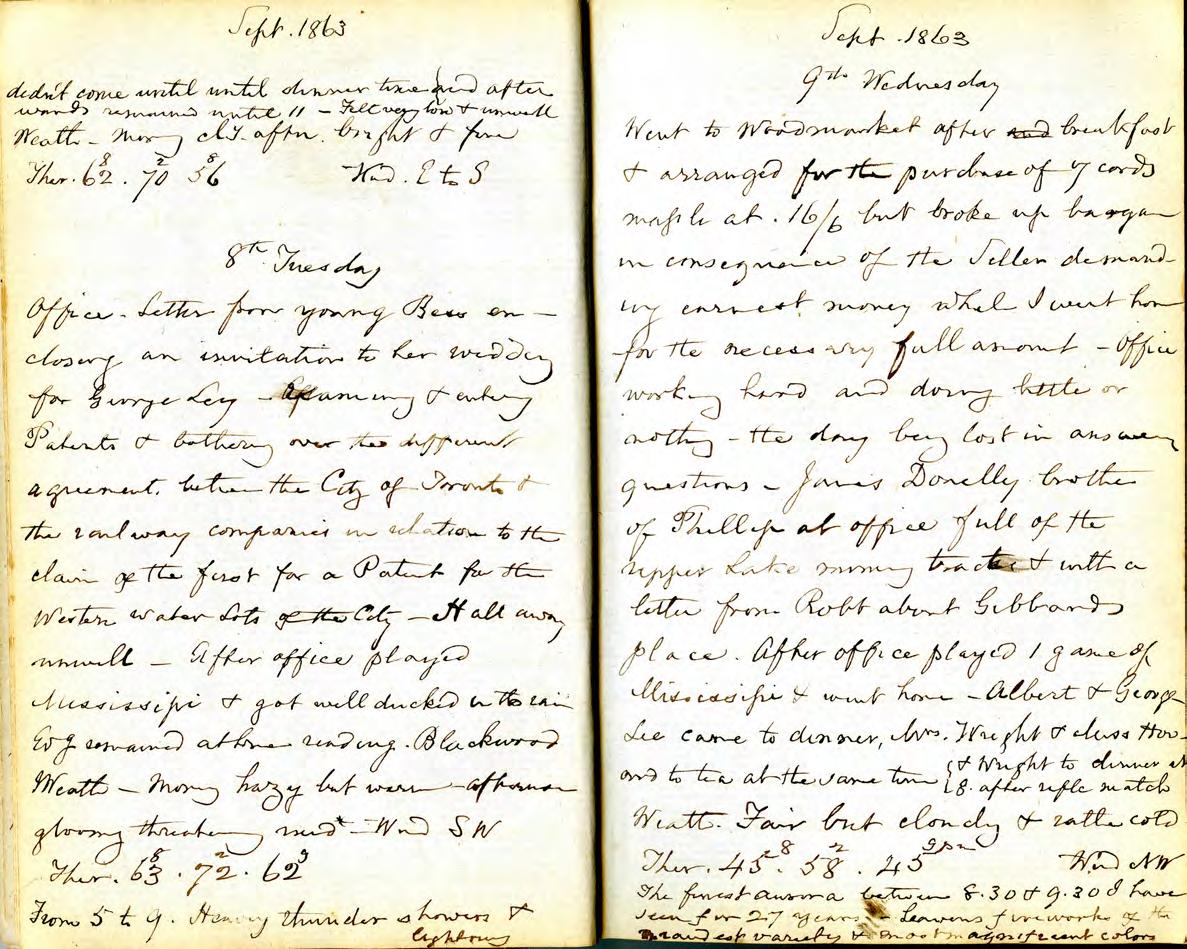 Sept. 1863
didn't come until until dinner time and after
wards remained until 11 - Felt very low & unwell
Weath - Morng cldy. aftn. bright & fine
Ther. 62 8 . 70 2 56 8 Wind. E to S
8th Tuesday
Office - Letter from young Bess en -
closing an invitation to her wedding
for George Ley - Examining & entering
Patents & bothering over the different
agreement. between the City of Toronto &
the railway companies in relation to the
claim of the first for a Patent for the
Western water Lots of the City - Hall away
unwell - After office played
Mississipi & got well ducked in the rain
Evg remained at home reading. Blackwood
Weath - Morng hazy but warm - afternoon
gloomy threatening - Wind SW
Ther. 63 8 . 72 2 . 62 9
From 5 to 9. Heavy thunder showers &
lightning
Sept. 1863
9th Wednesday
Went to Woodmarket after and breakfast
& arranged for the purchase of 7 cords
maple at . 16/6 but broke up bargan
in consequence of the Seller demand-
ing earnest money while I went home
for the necessary full amount - Office
working hard and doing little or
nothing - the day being lost in answering
questions - James Donelly brother
of Phillip at office full of the
upper Lake mining tracts & with a
letter from Robt about Gibbards
place. After office played 1 game of
Mississipi & went home - Albert & George
Lee came to dinner, Mrs. Wright & Miss How-
ard to tea at the same time { & Wright to dinner at
8. after rifle match
Weath. Fair but cloudy & rather cold
Ther. 45 8 . 58 2 . 45 9pm Wind NW
The finest aurora between 8.30 & 9.30 I have
seen for 27 years - Heavens fireworks of the
grandest variety & most magnificent colors